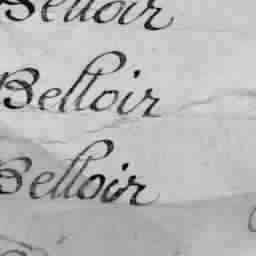 Belloir
Belloir
Belloir